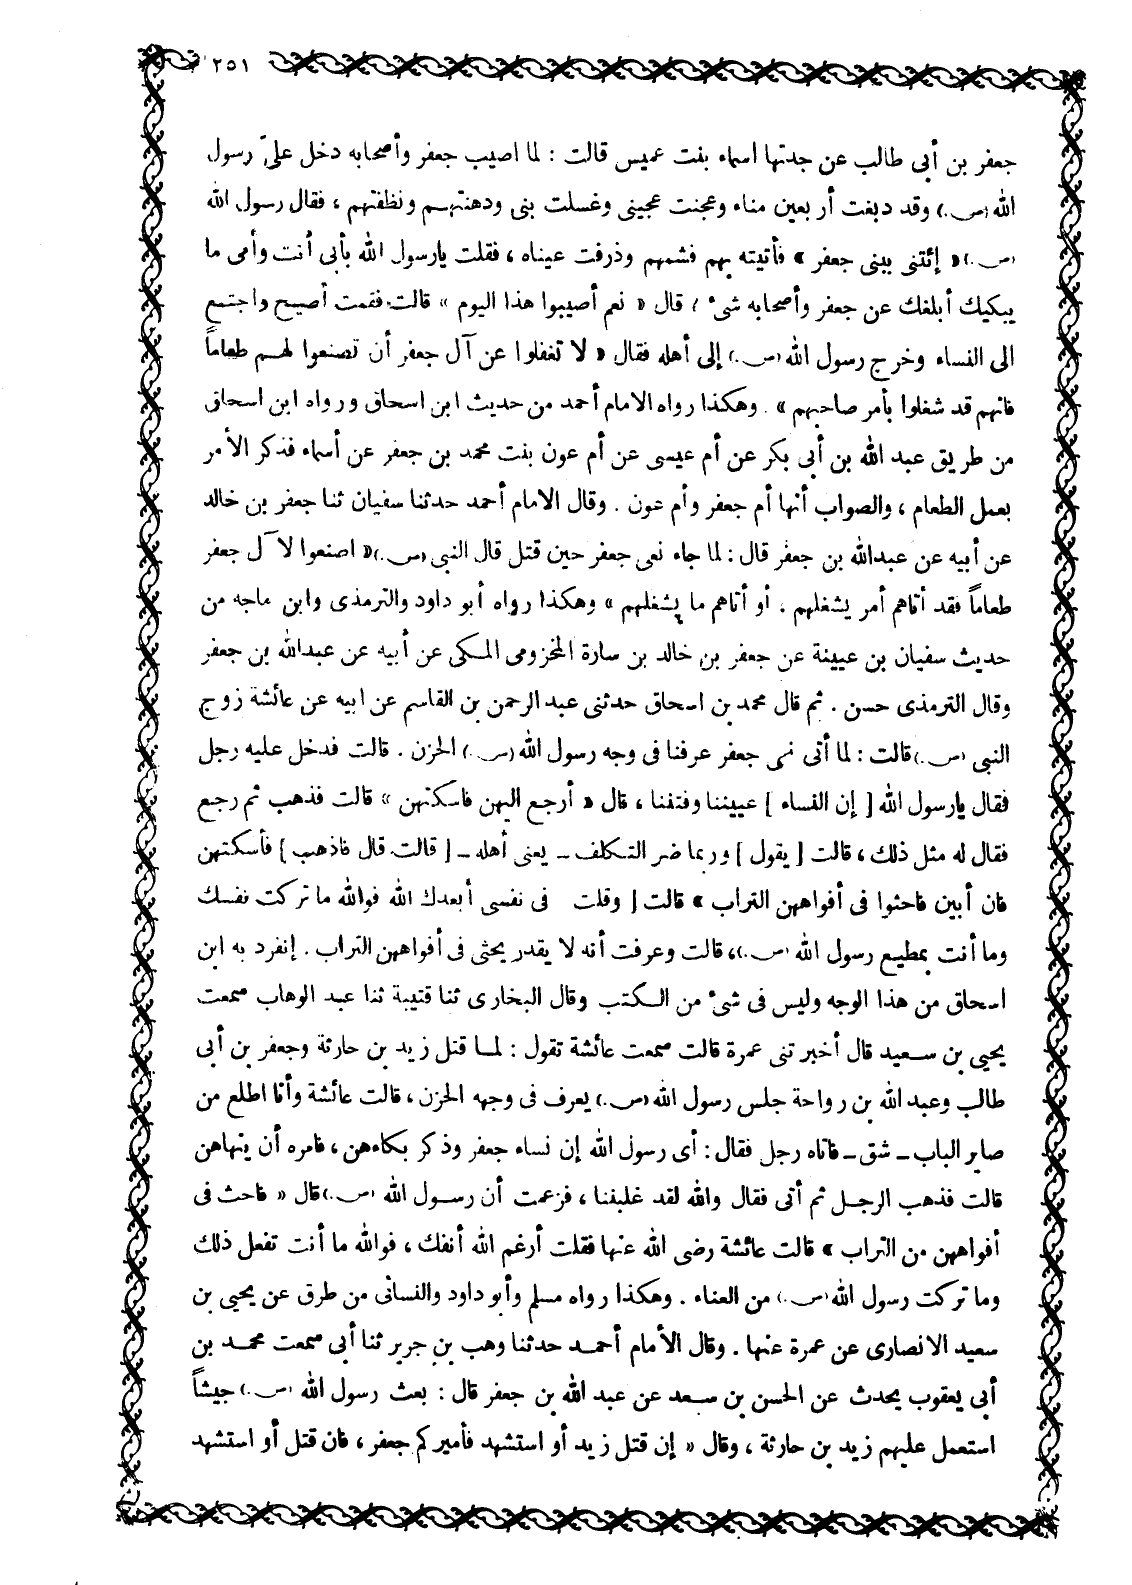 ٢٥١
جعفر بن أبى طالب عن جدتها اسماء بنت عميس قالت : لما اصيب جعفر وأصحابه دخل علىّ رسول
الله (ص.) وقد دبغت أربعين مناء وعجنت عجينى وغسلت بنى ودهنتهم ونظفتهم ، فقال رسول الله
(ص.) « إئتنى ببنى جعفر » فأتيته بهم فشمهم وذرفت عيناه ، فقلت يارسول الله بأبى أنت وأمى ما
يبكيك أبلغك عن جعفر وأصحابه شئ ؟ قال « نعم أصيبوا هذا اليوم » قالت فقمت أصيح واجتمع
الى النساء وخرج رسول الله (ص.) إلى أهله فقال « لا تغفلوا عن آل جعفر أن تصنعوا لهم طعاماً
فانهم قد شغلوا بأمر صاحبهم » . وهكذا رواه الامام أحمد من حديث ابن اسحاق ورواه ابن اسحاق
من طريق عبد الله بن أبى بكر عن أم عيسى عن أم عون بنت محمد بن جعفر عن أسماء فذكر الأمر
بعمل الطعام ، والصواب أنها أم جعفر وأم عون . وقال الامام أحمد حدثنا سفيان ثنا جعفر بن خالد
عن أبيه عن عبدالله بن جعفر قال : لما جاء نعى جعفر حين قتل قال النبى (ص.) « اصنعوا لآل جعفر
طعاماً فقد أتاهم أمر يشغلهم ، أو أتاهم ما يشغلهم » وهكذا رواه أبو داود والترمذى وابن ماجه من
حديث سفيان بن عيينة عن جعفر بن خالد بن سارة المخزومى المكى عن أبيه عن عبدالله بن جعفر
وقال الترمذى حسن . ثم قال محمد بن اسحاق حدثنى عبد الرحمن بن القاسم عن ابيه عن عائشة زوج
النبى (ص.) قالت : لما أتى نعى جعفر عرفنا فى وجه رسول الله (ص.) الحزن . قالت فدخل عليه رجل
فقال يارسول الله [ إن النساء ] عييننا وفتننا ، قال « أرجع اليهن فاسكتهن » قالت فذهب ثم رجع
فقال له مثل ذلك ، قالت [ يقول ] وربما ضر التكلف ـ يعنى أهله ـ [ قالت قال فاذهب ] فأسكتهن
فان أبين فاحثوا فى أفواههن التراب » قالت [ وقلت فى نفسى أبعدك الله فوالله ما تركت نفسك
وما أنت بمطيع رسول الله (ص.) ، قالت وعرفت أنه لا يقدر يحثى فى أفواههن التراب . إنفرد به ابن
اسحاق من هذا الوجه وليس فى شئ من الكتب وقال البخارى ثنا قتيبة ثنا عبد الوهاب سمعت
يحيى بن سعيد قال أخبرتنى عمرة قالت سمعت عائشة تقول : لما قتل زيد بن حارثة وجعفر بن أبى
طالب وعبد الله بن رواحة جلس رسول الله (ص.) يعرف فى وجهه الحزن ، قالت عائشة وأنا اطلع من
صاير الباب ـ شق ـ فاتاه رجل فقال : أى رسول الله إن نساء جعفر وذكر بكاءهن ، فامره أن ينهاهن
قالت فذهب الرجل ثم أتى فقال والله لقد غلبننا ، فزعمت أن رسول الله (ص.) قال « فاحث فى
أفواههن من التراب » قالت عائشة رضى الله عنها فقلت أرغم الله أنفك ، فوالله ما أنت تفعل ذلك
وما تركت رسول الله (ص.) من العناء . وهكذا رواه مسلم وأبو داود والنسائى من طرق عن يحيى بن
سعيد الانصارى عن عمرة عنها . وقال الأمام أحمد حدثنا وهب بن جرير ثنا أبى سمعت محمد بن
أبى يعقوب يحدث عن الحسن بن سعد عن عبد الله بن جعفر قال : بعث رسول الله (ص.) جيشاً
استعمل عليهم زيد بن حارثة ، وقال « إن قتل زيد أو استشهد فأميركم جعفر ، فان قتل أو استشهد